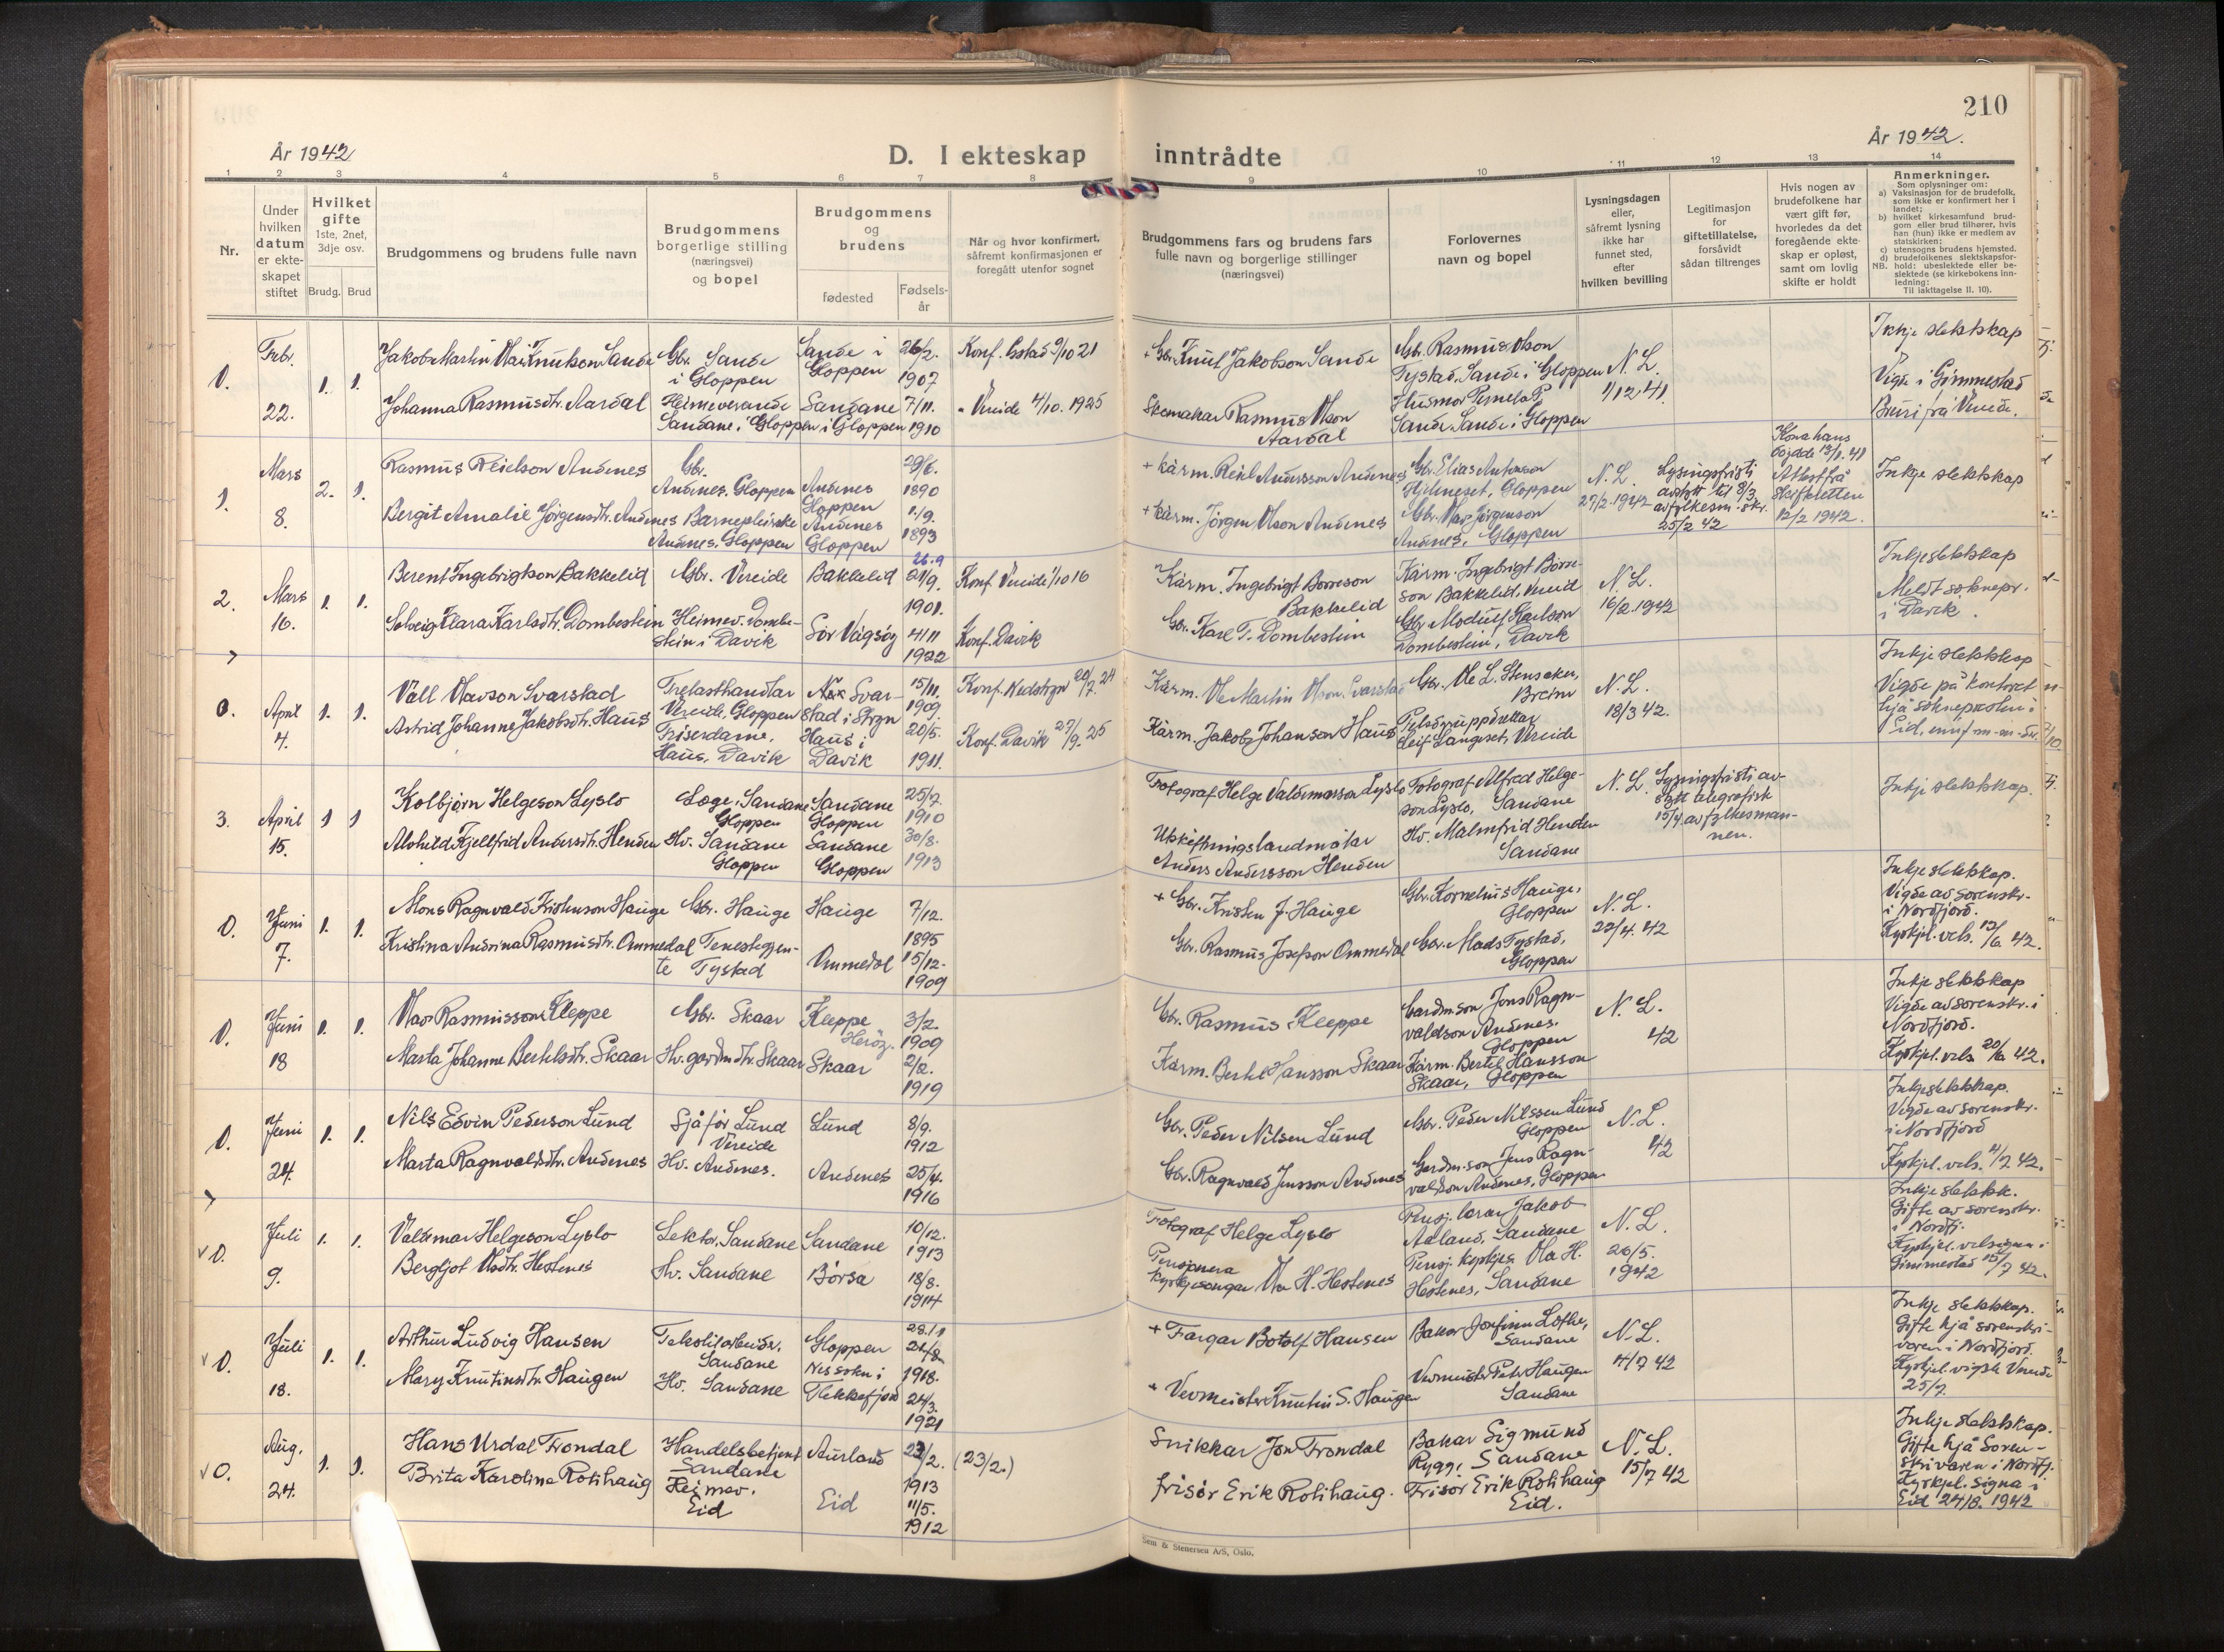 210
År 1942
År 1942.
D. I ekteskap inntrådte
1 2 3 4 5 6 7 8 9 10 11 12 13 14
Nr.
Under
hvilken
datum
er ekte-
skapet
stiftet
Hvilket
gifte
1ste, 2net,
3dje osv.
Brudg. Brud
Brudgommens og brudens fulle navn
Brudgommens
borgerlige stilling
(næringsvei)
og bopel
Brudgommens
og
brudens
fødested
Fødsels-
år
Når og hvor konfirmert,
såfremt konfirmasjonen er
foregått utenfor sognet
Brudgommens fars og brudens fars
fulle navn og borgerlige stillinger
(næringsvei)
Forlovernes
navn og bopel
Lysningsdagen
eller,
såfremt lysning
ikke har
funnet sted,
efter
hvilken bevilling
Legitimasjon
for
giftetillatelse,
forsåvidt
sådan tiltrenges
Hvis nogen av
brudefolkene har
vært gift før,
hvorledes da det
foregående ekte-
skap er opløst,
samt om lovlig
skifte er holdt
Anmerkninger.
Som oplysninger om:
a) Vaksinasjon for de brudefolk,
som ikke er konfirmert her i
landet;
b) hvilket kirkesamfund brud-
gom eller brud tilhører, hvis
han (hun) ikke er medlem av
statskirken;
c) utensogns brudens hjemsted.
d) brudefolkenes slektskapsfor-
NB. hold: ubeslektede eller be-
slektede (se kirkebokens inn-
ledning:
Til iakttagelse II. 10).
0.
Febr.
22.
1. 1.
Jakob Martin Knutson Sande
Johanna Rasmusdtr. Aardal
Gbr. Sande
i Gloppen
Heimeverande
Sandane i Gloppen
Sande i
Gloppen
Sandane
i Gloppen
26/2.
1907
7/11.
1910
Konf. Gstad 9/10 21
" Vereide 4/10. 1925
+ Gbr. Knut Jakobson Sande
Skomakar Rasmus Olson
Aardal
Gbr. Rasmus Olson
Tystad, Sande i Gloppen
Husmor Pernela P.
Sande, Sande i Gloppen
N. L.
1/12 41.
Ikkje slektskap
Vigde i Gimmestad
Brüri frå Vereide.
1.
Mars
8.
2. 1.
Rasmus Reielson Andenes
Bergit Amalie Jørgensdtr. Andenes
Gbr.
Andenes, Gloppen
Barnepleierske
Andenes, Gloppen
Andenes
Gloppen
Andenes
Gloppen
29/6.
1890
1./9.
1893
+ kårm. Reiel Andersson Andenes
+ kårm. Jørgen Olson Andenes
Gbr. Elias Antonson
Hjelmeset, Gloppen
Gbr. Olav Jørgenson
Andenes, Gloppen
N. L.
27/2. 1942
Lysingsfristi
avstytt til 8/3
av fylkesm. skr.
25/2 42
Kona hans
døydde 13/1. 41
Attest frå
skifteretten
12/2 1942.
Inkje slektskap
2.
Mars
16.
1. 1.
Berent Ingebrigtson Bakkelid
Solveig Klara Karlsdtr. Dombestein
Gbr. Vereide
Heimev. Dombe-
stein i Davik
Bakkelid
Sør Vågsøy
26.9
21/9.
1901.
4/11
1922
Konf. Vereide 1/10 16
Konf. Davik
Kårm. Ingebrigt Borreson
Bakkelid
Gbr. Karl T. Dombestein
Kårm. Ingebrigt Børre-
son Bakkelid, Vereid
Gbr. Modulf Karlson
Dombestein, Davik
N. L.
16/2. 1942
Inkje slektskap
Meldt soknepr.
i Davik.
0.
April
4.
1. 1.
Vall Olavson Svarstad
Astrid Johanne Jakobsdtr. Haus
Trelasthandlar
Vereide, Gloppen
Friserdame,
Haus, Davik
Svar-
stad i Stryn
Haus i
Davik
15/11.
1909
20/5.
1911.
Konf. Nedstryn 20/7. 24
Konf. Davik 27/9. 25
Kårm. Ole Martin Olson Svarstad
Kårm. Jakob Johanson Haus
Gbr. Ole L. Stensaker,
Breim
Pelsdyruppdrettar
Leif Langeset, Vereide
N. L.
18/3 42.
Inkje slektskap
Vigde på kontoret
hjå soknepresten i
Eid,
3.
April
15.
1 1
Kolbjørn Helgeson Lyslo
Alvhild Kjellfrid Andersdtr. Henden
Læge, Sandane
Gloppen
Hv. Sandane
Gloppen
Sandane
Gloppen
Sandane
Gloppen
25/7.
1910
30/8.
1913
Fotograf Helge Valdemarson Lyslo
Utskiftningslandmålar
Anders Andersson Henden
Fotograf Alfred Helge-
son Lyslo, Sandane
Hv. Malmfrid Henden
Sandane
N. L.
Lysingsfristi av-
stytt telegrafisk
15/4. av fylkesman-
nen.
Inkje slektskap.
0.
Juni
7.
1. 1.
Mons Ragnvald Kristenson Hauge
Kristina Andrina Rasmusdtr. Ommedal
Gbr. Hauge
Tenestegjen-
te Tystad
Hauge
Ommedal
7/12.
1895
15/12.
1909
+ Gbr. Kristen J. Hauge
Gbr. Rasmus Josefson Ommedal
Gbr. Kornelius Hauge,
Gloppen
Gbr. Mads Tystad,
Gloppen
N. L.
22/4. 42
Inkje slektskap.
Vigde av sorenskr.
i Nordfjord.
Kyrkjel. vels. 12/6 42.
0.
Juni
18
1. 1.
Olav Rasmusson Kleppe
Marta Johanne Bertelsdtr. Skaar
Gbr. Skaar
Hv. gardm.dtr. Skaar
Kleppe
Herøy.
Skaar
3/2.
1909
2/2.
1919
Gbr. Rasmus Kleppe
Kårm. Bertel Hansson Skaar
Gardm.son Jens Ragn-
valdson Andenes.
Gloppen
Kårm. Bertel Hansson
Skaar, Gloppen
N. L.
42
Inkje slektskap
Vigde av sorenskr. i
Nordfjord.
Kyrkjel. vels 20/6 42.
0.
Juni
24.
1. 1.
Nils Edvin Pederson Lund
Marta Ragnvaldsdtr. Andenes
Sjåfør Lund
Vereide
Hv. Andenes.
Lund
Andenes
8/9.
1912
25/4.
1916
Gbr. Peder Nilsen Lund
Gbr. Ragnvald Jensson Andenes
Gbr. Peder Nilssen Lund
Gloppen
Gardm.son Jens Ragn-
valdson Andenes, Gloppen
N. L.
42
Inkje slektskap.
Vigde av sorenskr.
i Nordfjord
Kyrkjel. vels. 4/7 42.
√ 0.
Juli
9.
1. 1.
Valdemar Helgeson Lyslo
Bergljot Olsdtr. Hestenes
Lektor, Sandane
Hv. Sandane
Sandane
Børsa
10/12.
1913
18/8.
1914
Fotograf Helge Lyslo
Pensjonera
kyrkjesongar Ola H. Hestenes
Pensj. lærar Jakob
Aaland, Sandane
Pensj. kyrkjes. Ola H.
Hestenes, Sandane
N. L.
20/5.
1942
Inkje slektsk.
Gifte av sorenskr.
i Nordfj.
Kyrkjel. velsigna i
Gimmestad 15/7 42.
√ 0.
Juli
18.
1. 1.
Arthur Ludvig Hansen
Mary Knutinsdtr. Haugen
Tekstilarbeidar,
Sandane
Hv. Sandane
Gloppen
Nes sokn i
Flekkefjord
28.11
21/8
1918.
24/3.
1921
+ Fargar Botolf Hansen
+ Vevmeister Knutin S. Haugen
Bakar Jonfinn Lothe,
Sandane
Vevmeister Peter Haugen
Sandane
N. L.
14/7 42
Inkje slektskap.
Gifte hjå sorenskri-
varen i Nordfjord.
Kyrkjel. vigsle Vereide
25/7.
√ 0.
Aug.
24.
1. 1.
Hans Urdal Trondal
Brita Karoline Rotihaug
Handelsbetjent
Sandane
Heimev.
Eid
Aurland
Eid
23/2.
1913
11/5.
1912
(23/2.)
Snikkar Jon Trondal
frisør Erik Rotihaug.
Bakar Sigmund
Rygg, Sandane
Frisør Erik Rotihaug
Eid.
N. L.
15/7 42
Inkje slektskap.
Gifte hjå Soren-
skrivaren i Nordfj.
Kyrkjel. signa i
Eid 24/8. 1942
Sem & Stenersen A/S, Oslo.